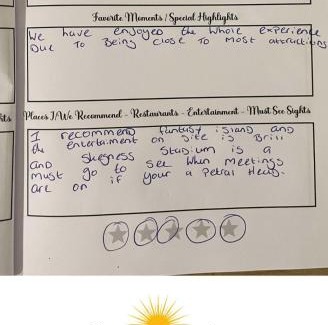 Favorite Moments / Special Highlights
We have enjoyed the whole experience
Due To Being close To most attractions
Places I/We Recommend - Restaurants - Entertainment - Must See Sights
I recommend fantasy island and
the entertainment on site is Brill
and skegness Stadium is a
must go to see when meetings
are on if your a Petrol Head.